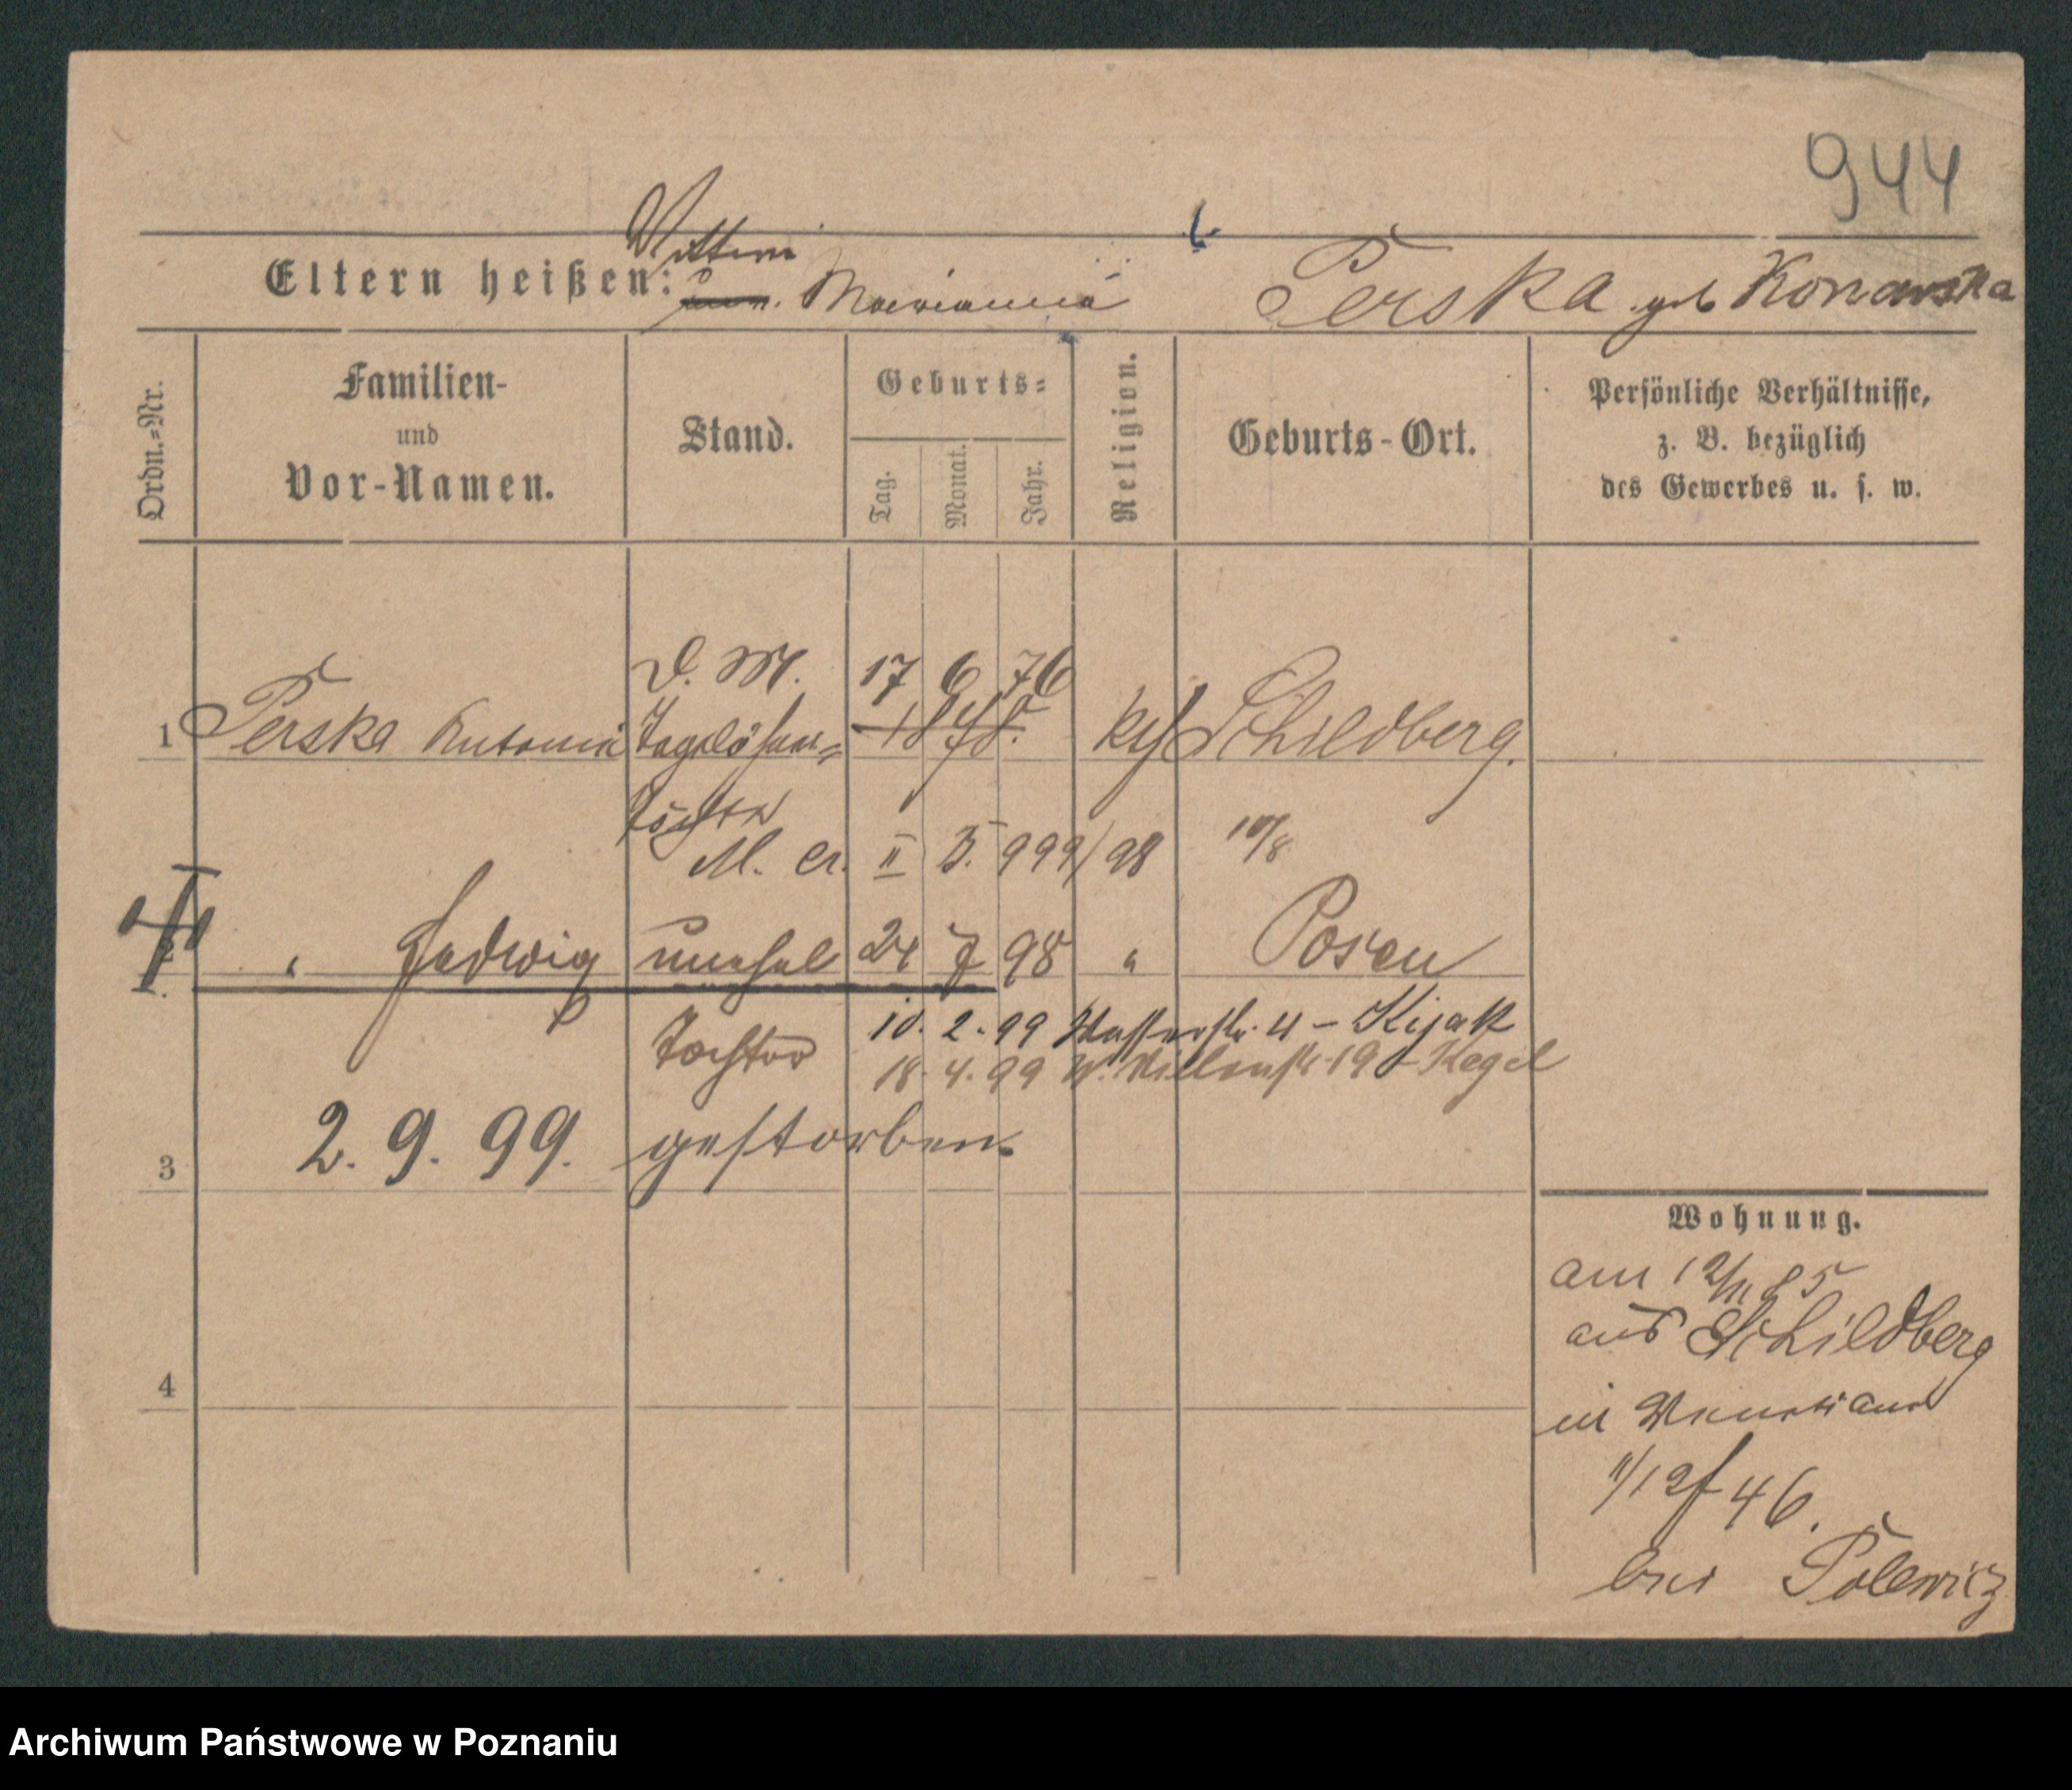 944
Wittwe
Eltern heißen: Marianna Perska geb Konarska
Ordn.=Nr.
Familien-
und
Vor-Namen.
Stand.
Geburts=
Tag.
Monat.
Jahr.
Religion.
Geburts-Ort.
Persönliche Verhältnisse,
z. B. bezüglich
des Gewerbes u. s. w.
D. M. 17 6 76
1 Perska Antonia Tagelöhner= 1878. kth Schildberg.
Tochter
M. Cr. II 3. 999/98 10/8
2 " Hedwig unehel 24 7 98 " Posen
Tochter 10. 2. 99 Wasserstr. 4 - Kijak
18. 4. 99 19 - Kegel
3 2. 9. 99. gestorben.
4
Wohnung.
am 12/11 85
aus Schildberg
in
11/12 f 46.
bei Polewicz
Archiwum Państwowe w Poznaniu